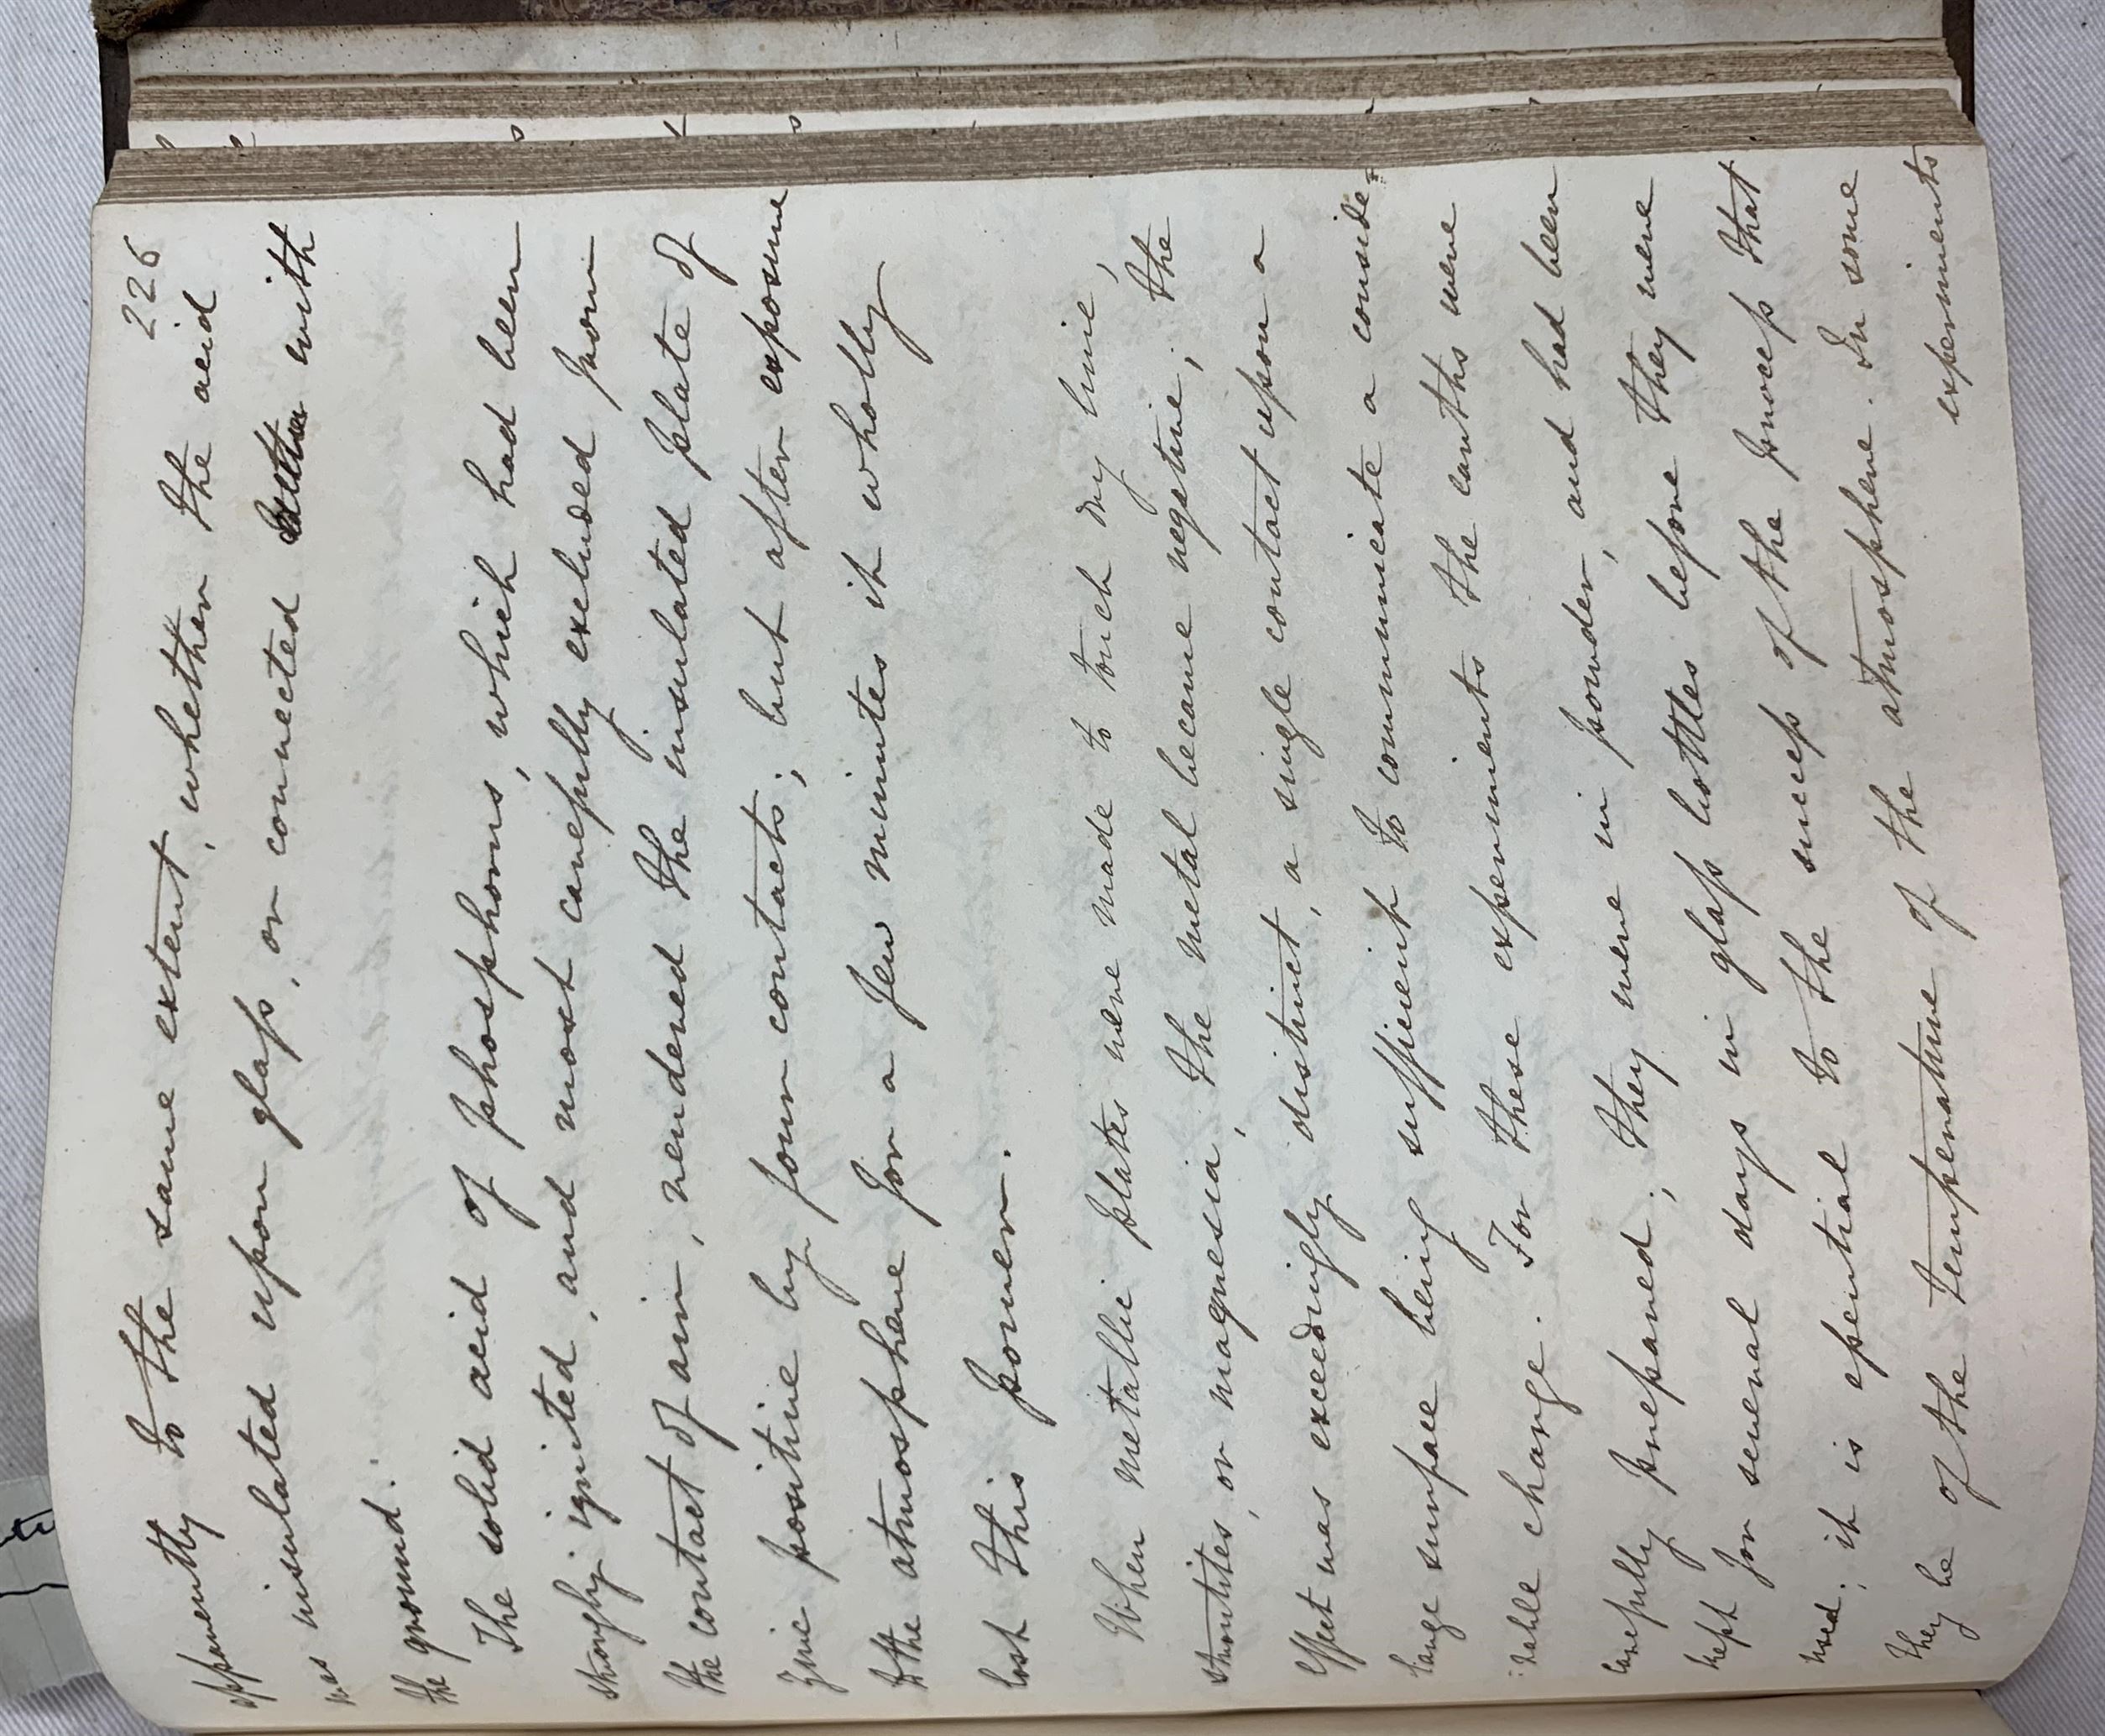 226
apparently to the same extent, whether the acid
was insulated upon glass, or connected with
the ground.
The solid acid of phosphorus, which had been
strongly ignited, and most carefully excluded from
the contact of air, rendered the insulated plate of
zinc positive by four contacts; but after exposure
to the atmosphere for a few minutes it wholly
lost this power.
When metallic plates were made to touch dry lime,
strontites, or magnesia, the metal became negative; the
effect was exceedingly distinct, a single contact upon a
large surface being sufficient to communicate a conside=
rable charge. For these experiments the earths were
carefully prepared; they were in powder, and had been
kept for several days in glass bottles before they were
used; it is essential to the success of the process that
they be of the temperature of the atmosphere. In some
experiments